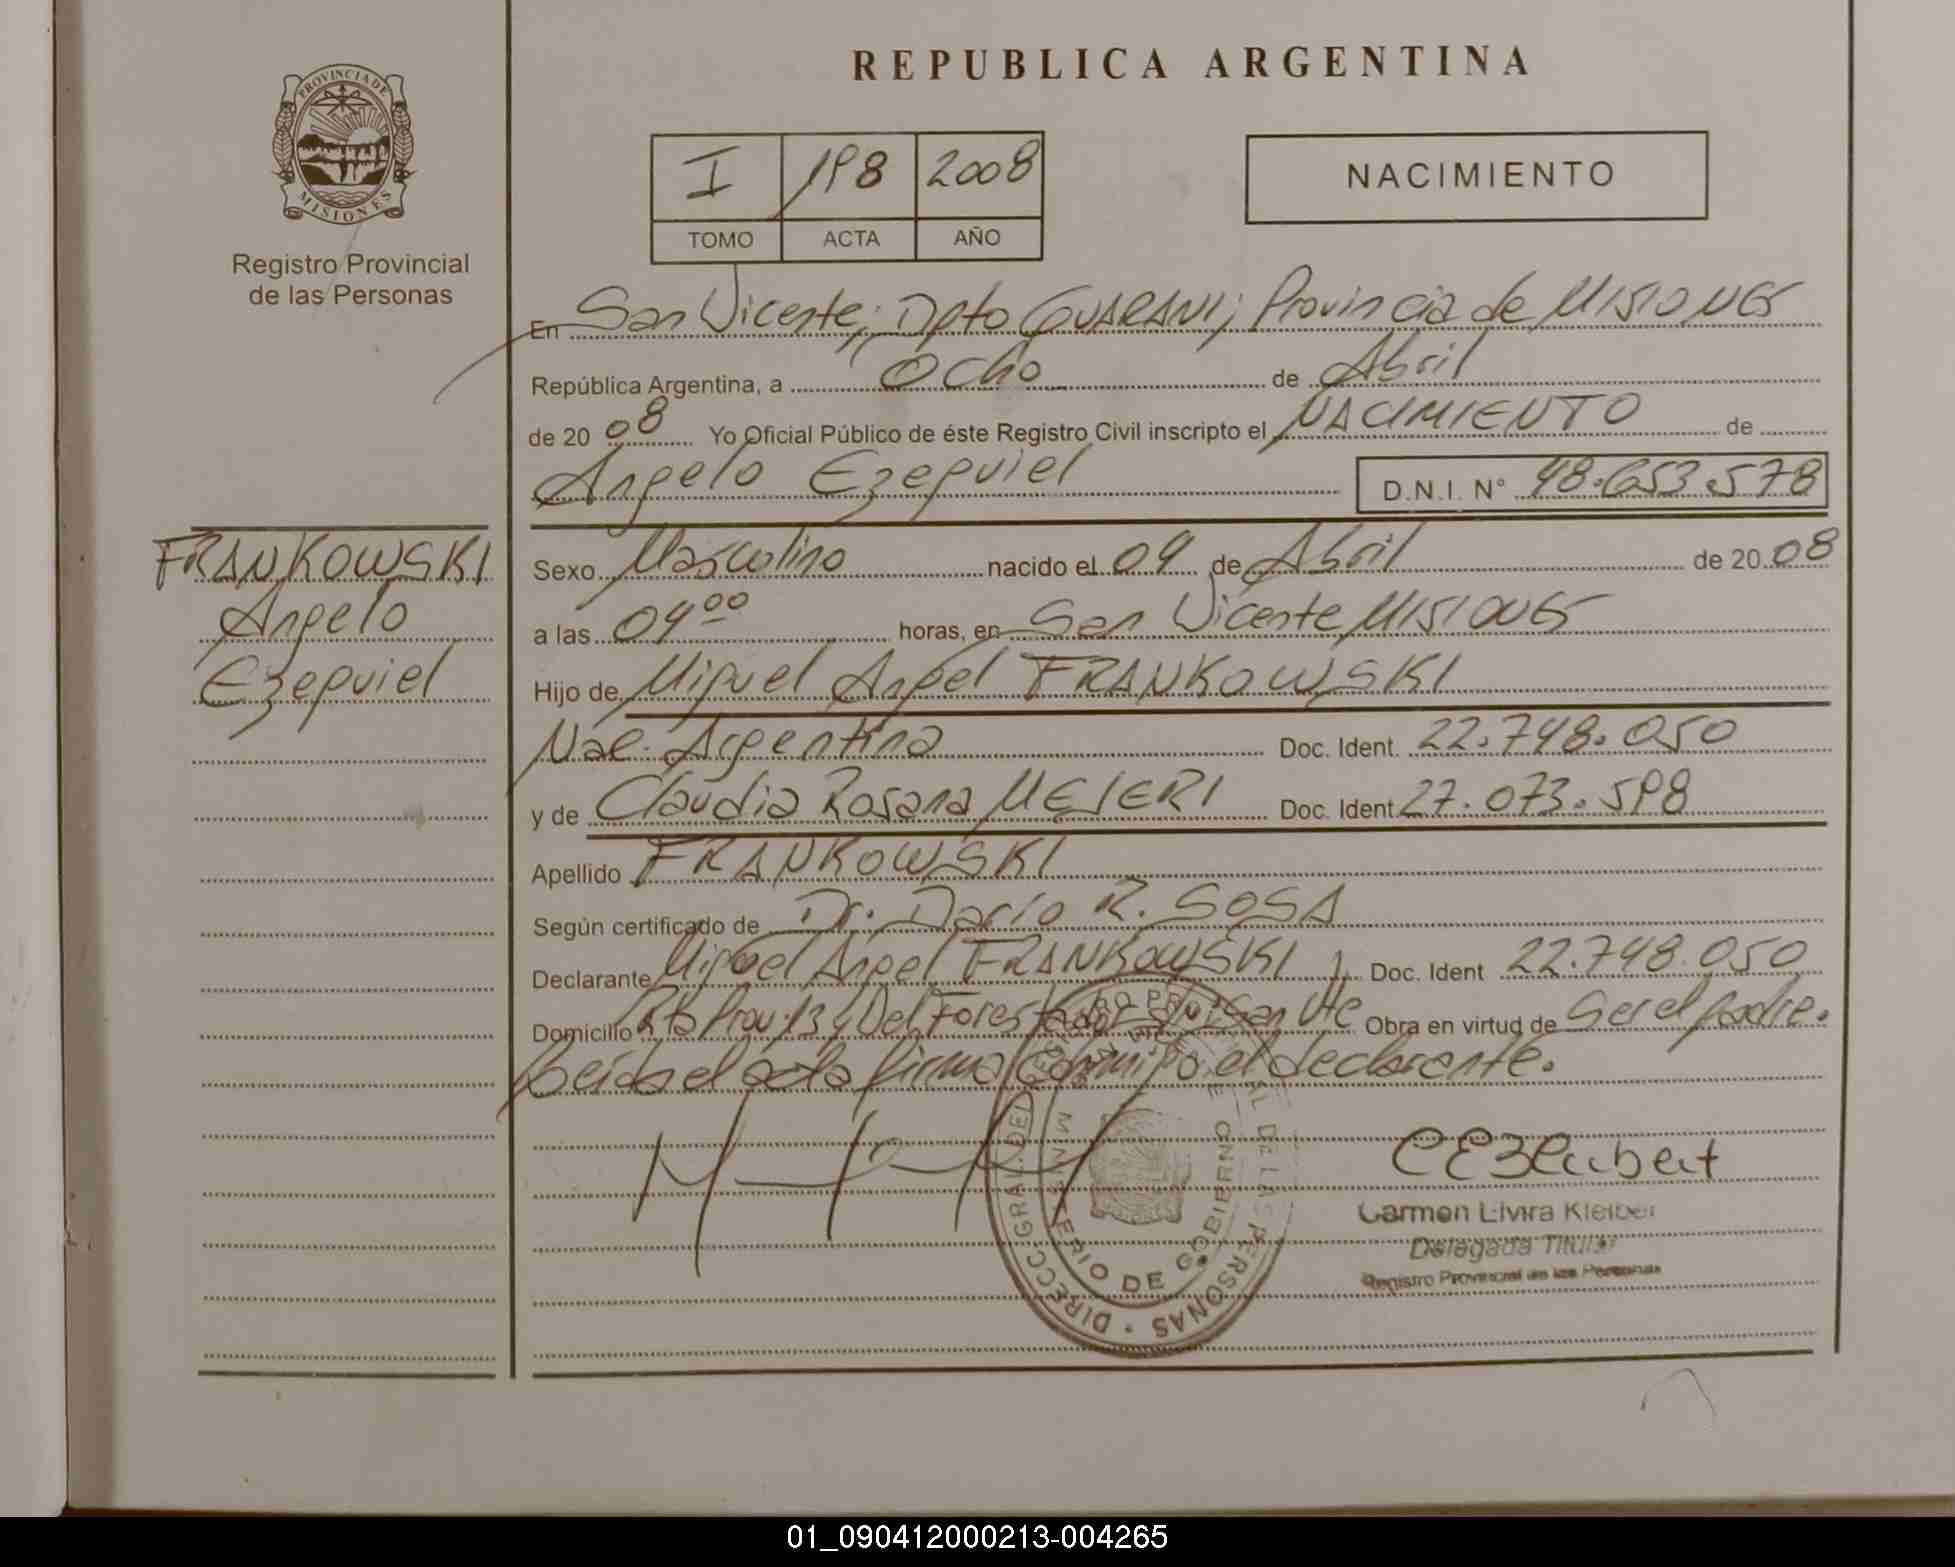 PROVINCIA DE
MISIONES
Registro Provincial
de las Personas
REPUBLICA ARGENTINA
I 198 2008
TOMO ACTA AÑO
NACIMIENTO
En San Vicente; Dpto GUARANI; Provincia de MISIONES
República Argentina, a Ocho de Abril
de 20 08 Yo Oficial Público de éste Registro Civil inscripto el NACIMIENTO de
Angelo Ezequiel D.N.I. N° 48.653.578
FRANKOWSKI
Angelo
Ezequiel
Sexo Masculino nacido el 04 de Abril de 20 08
a las 04 00 horas, en San Vicente MISIONES
Hijo de Miguel Angel FRANKOWSKI
Nac. Argentina Doc. Ident. 22.748.050
y de Claudia Rosana Doc. Ident. 27.073.598
Apellido FRANKOWSKI
Según certificado de Dr. Darío R. SOSA
Declarante Miguel Angel FRANKOWSKI Doc. Ident 22.748.050
Domicilio Rta Prov. 13 y Del San Vte Obra en virtud de Ser el padre.
Leída el acta firma conmigo el declarante.
DIRECC. GRAL. DEL PERSONAS
MINISTERIO DE GOBIERNO
Carmen Elvira Kleiber
Delegada Titular
Registro Provincial de las Personas
01_090412000213-004265